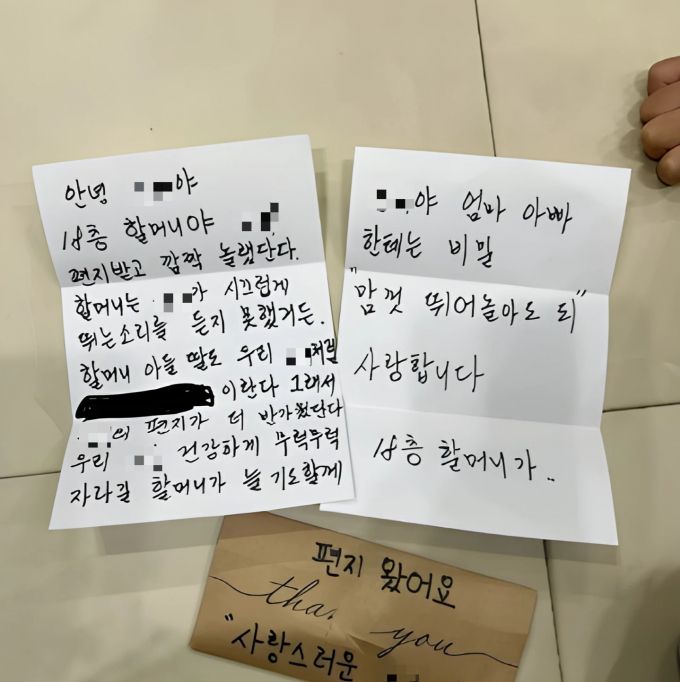 안녕 야
18층 할머니야
편지받고 깜짝 놀랬단다.
할머니는 가 시끄럽게
뛰는소리를 듣지 못했거든.
할머니 아들 딸도 우리 처럼
이란다 그래서
의 편지가 더 반가웠단다
우리 건강하게 무럭무럭
자라길 할머니가 늘 기도할게
야 엄마 아빠
한테는 비밀
"맘껏 뛰어놀아도 되"
사랑합니다
18층 할머니가..
편지 왔어요
thank you
"사랑스러운